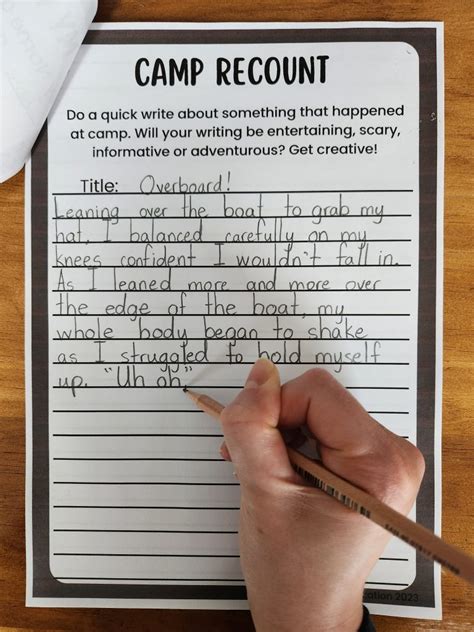 CAMP RECOUNT
Do a quick write about something that happened
at camp. Will your writing be entertaining, scary,
informative or adventurous? Get creative!
Title: Overboard!
Leaning over the boat to grab my
hat, I balanced carefully on my
knees confident I wouldn't fall in.
As I leaned more and more over
the edge of the boat, my
whole body began to shake
as I struggled to hold myself
up. "Uh oh,
2023